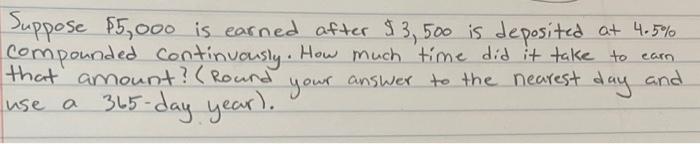 Suppose $5,000 is earned after $3,500 is deposited at 4.5%
compounded continuously. How much time did it take to earn
that amount? (Round your answer to the nearest day and
use a 365-day year).